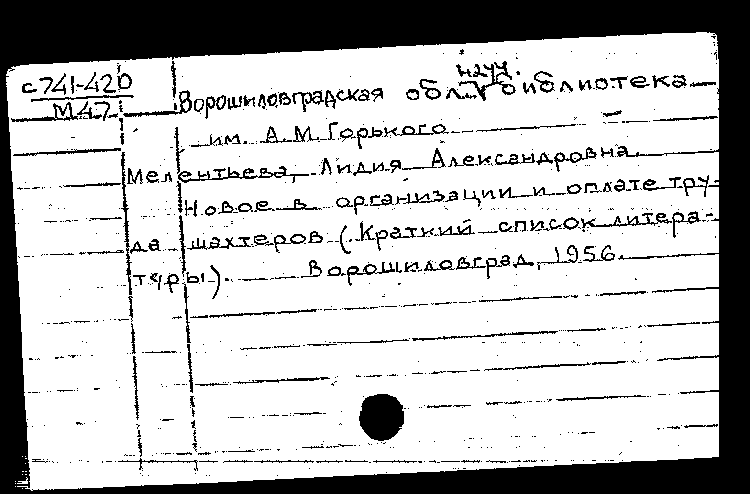 с741-420
М47
науч.
Ворошиловградская обл. V библиотека
им. А.М. Горького
Мелентьева, Лидия Александровна.
Новое в организации и оплате тру-
да шахтеров (Краткий список литера-
туры). Ворошиловград, 1956.